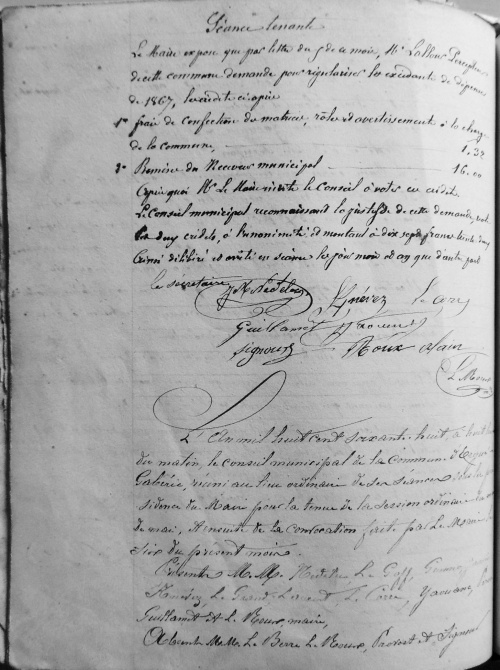 Séance tenante
Le Maire expose que par lettre du 5 de ce mois, Mr Lallour Percepteur
de cette commune demande pour régulariser les excédants de dépenses
de 1867, les crédits ci-après
1° frais de confection des matrices, rôles et avertissement à la charge
de la commune, 1.32
2° Remise du Receveur municipal 16.00
Après quoi Mr Le Maire invite le Conseil à voter ce crédit
Le Conseil municipal reconnaissant la justesse de cette demande, vote
les deux crédits, à l'unanimité et montant à dix sept francs trente deux
Ainsi délibéré et arrêté en séance les jour mois et an que d'autre part
le secrétaire
Guillamet
Signour Roux
L'An mil huit cent soixante huit, à huit
du matin, le conseil municipal de la Commune d'Ergué
Gabéric, réuni au lieu ordinaire de ses séances sous la pré
sidence du Maire pour la tenue de la session ordinaire
de mai, et ensuite de la convocation faite par Le Maire
six du présent mois.
Présents M.M. Nédélec Le Goff,
Le Grand
Guillamet et Le Roux, maire,
Absents MM. Le Berre Le Roux, Provost et Signour